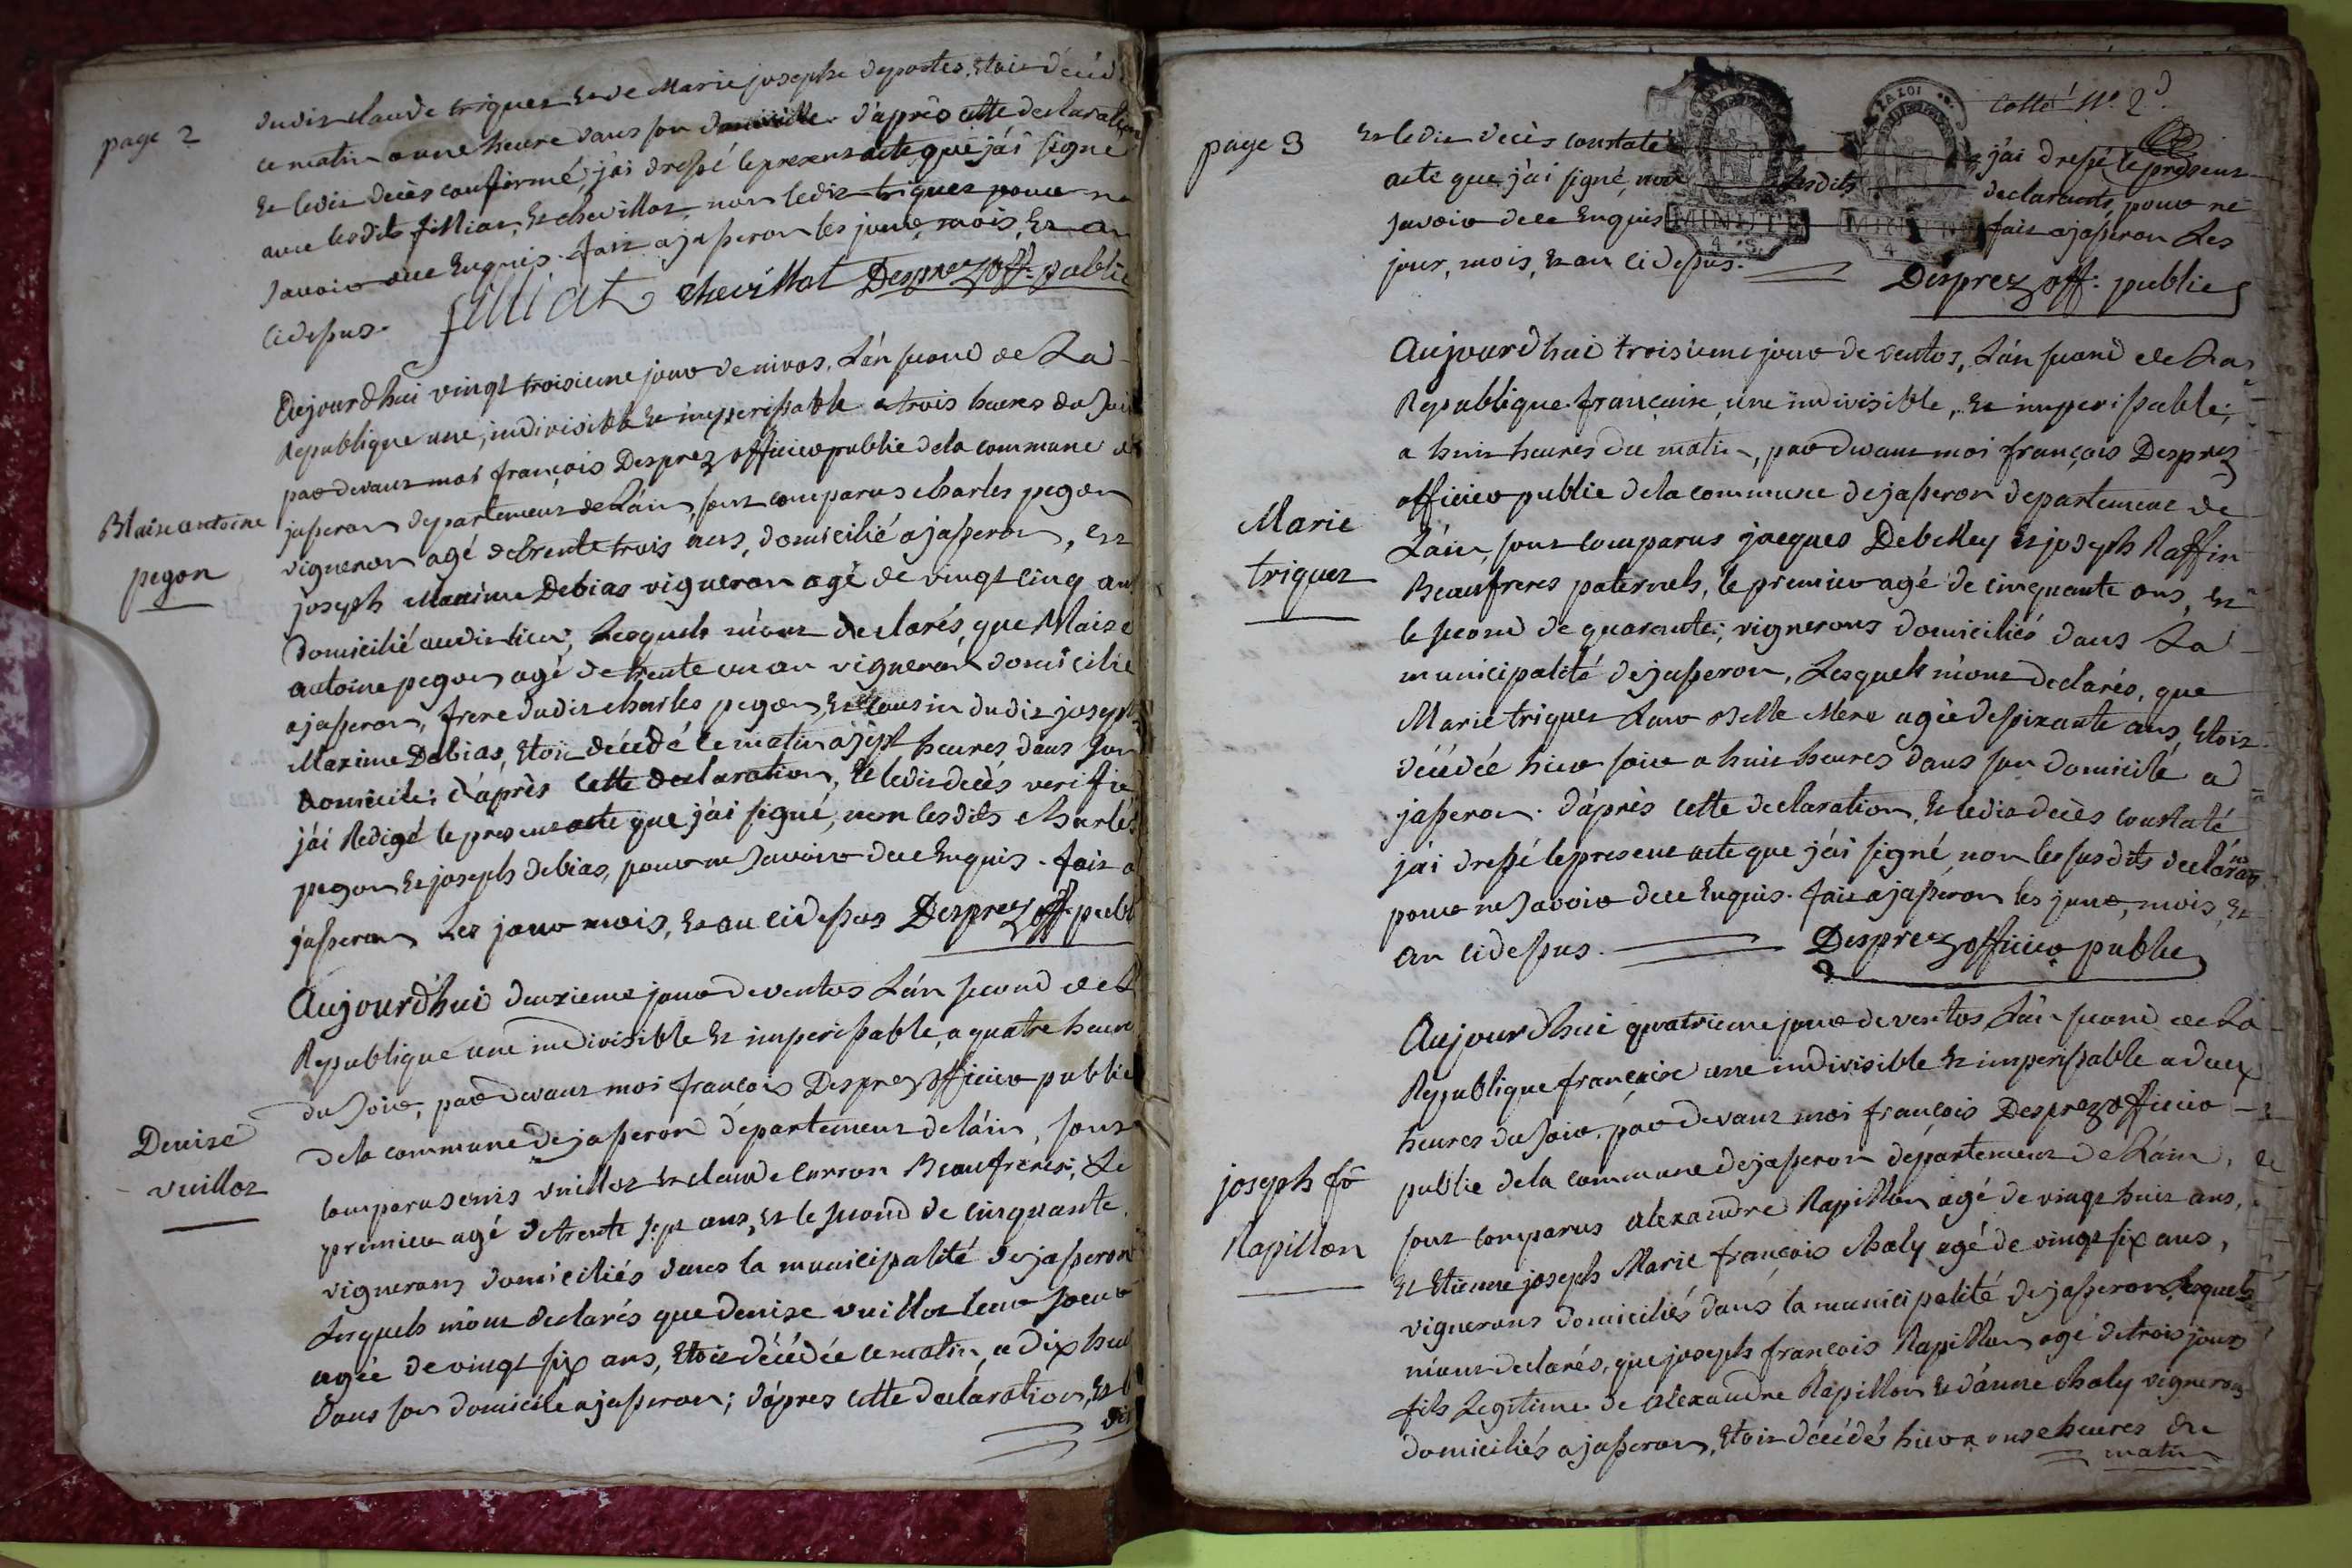 page 2
dudit claude triquet et de Marie josephe deportes, etoit décéd
ce matin a une heure dans son domicille. d'après cette declaration
et ledit decès confirmé, j'ai dressé le present acte que j'ai signé
avec lesdits filliat, et chevillot, non ledit triquet pour ne
savoir de ce enquis. fait a jasseron les jour, mois, et an
cidessus. filliat chevillot Desprez off. public
Blaise antoine
pegon
Aujourdhui vingt troisieme jour de nivos, L'an second de La
Republique une, indivisible et imperissable a trois heures du soir
par devant moi françois Desprez officier public dela commune de
jasseron departement de L'ain, sont comparus charles pegon
vigneron agé de trente trois ans, domicilié a jasseron, et
joseph Maxime Debias vigneron agé de vingt cinq ans
domicilié audit lieu; Lesquels m'ont declarés, que Blaise
antoine pegon agé de trente un an vigneron domicilié
a jasseron, frere dudit charles pegon, et cousin dudit joseph
Maxime Debias, etoit décédé ce matin a sept heures dans son
domicile; d'après cette declaration, et ledit decès verifié
j'ai Redigé le present acte que j'ai signé, non lesdits charles
pegon et joseph debias, pour ne savoir de ce enquis. fait a
jasseron Les jour mois, et an cidessus Desprez off. publ
Denise
vuillot
Aujourd'hui deuxieme jour de ventos L'an second de L
Republique une indivisible et imperissable, a quatre heure
du soir, par devant moi françois Desprez officier public
dela commune de jasseron département de l'ain, sont
comparus denis vuillot et claude curron Beaufreres; Le
premier agé de trente sept ans, et le second de cinquante,
vignerons domiciliés dans la municipalité de jasseron
Lesquels m'ont declarés que denise vuillot leur soeur
agée de vingt six ans, etoit décédée ce matin, a dix heu
dans son domicile a jasseron; d'apres cette declaration, et l
dit
page 3
Cotté N° 2d.
et ledit decès constaté j'ai dressé le present
acte que j'ai signé, non lesdits declarants, pour ne
savoir de ce enquis fait a jasseron Les
jour, mois, et an cidessus. Desprez off. public
LA LOI
MINUTE
4 S.
MINUTE
4
Marie
triquet
Aujourdhui troisieme jour de ventos, L'an second de La
Republique française, une indivisible, et imperissable,
a huit heures du matin, par devant moi françois Desprez
officier public dela commune de jasseron departement de
L'ain, sont comparus jacques Debelley et joseph Raffin
Beaufreres paternels, le premier agé de cinquante ans, et
le second de quarante; vignerons domiciliés dans La
municipalité de jasseron, Lesquels m'ont declarés, que
Marie triquet Leur Belle Mere agée de soixante ans, etoit
décédée hier soir a huit heures dans son domicile a
jasseron. d'après cette declaration, et ledit decès constaté
j'ai dressé le present acte que j'ai signé, non les susdits declarants
pour ne savoir de ce enquis. fait a jasseron les jour, mois, et
an cidessus. Desprez officier public
joseph fo
Rapillon
Aujourdhui quatrieme jour de ventos L'an second de La
Republique française une indivisible et imperissable a deux
heures du soir. par devant moi françois Desprez officier
public dela commune de jasseron département de L'ain,
sont comparus alexandre Rapillon agé de vingt huit ans,
et Etienne joseph Marie françois chaly agé de vingt six ans,
vignerons domiciliés dans la municipalité de jasseron, Lesquels
m'ont declarés, que joseph françois Rapillon agé de trois jours
fils Legitime de alexandre Rapillon et d'anne chaly vignerons
domiciliés a jasseron, etoit décédé hier a onse heures du
matin